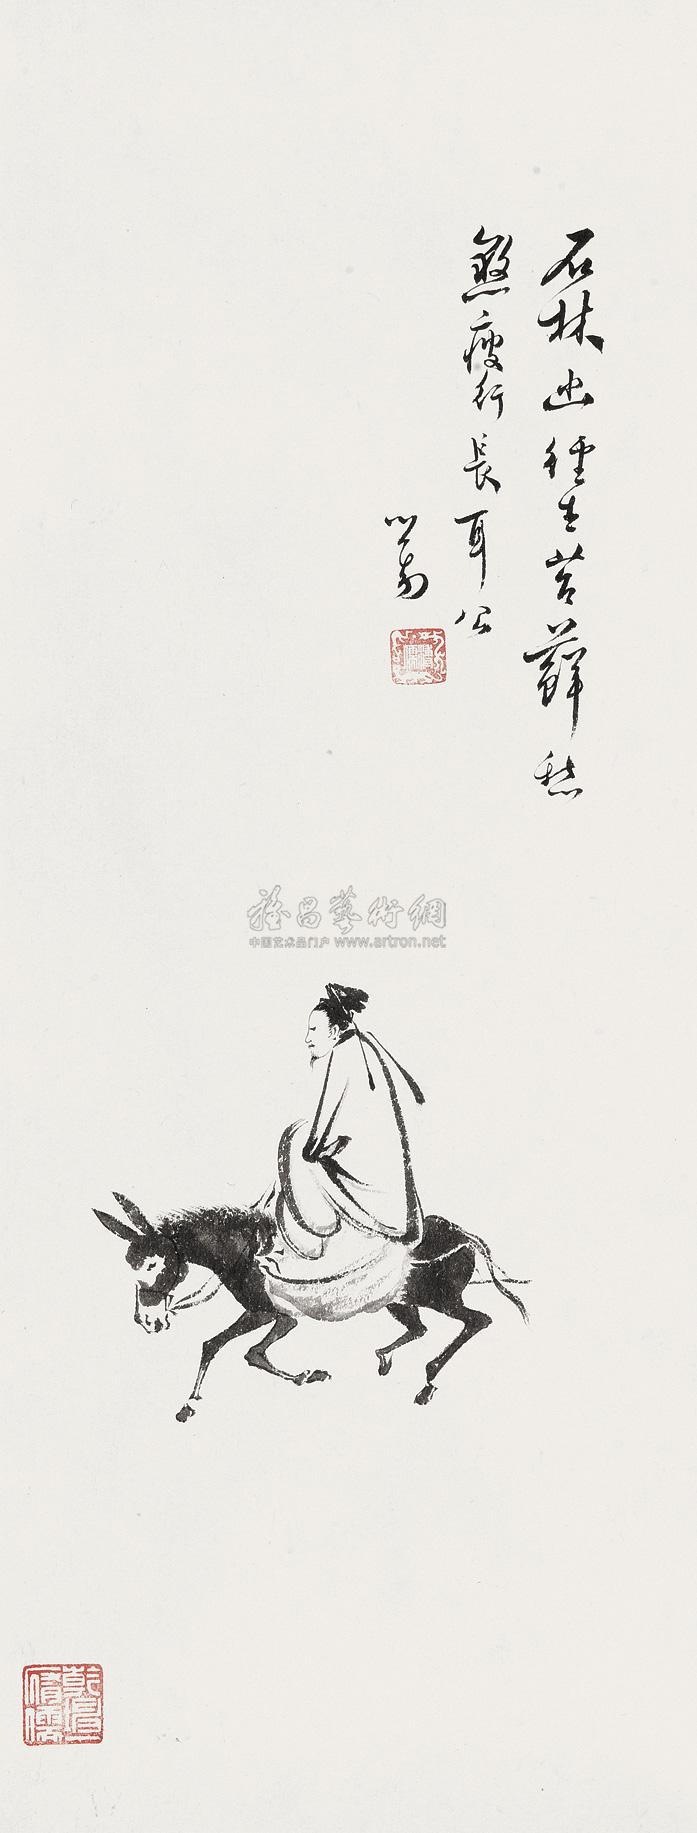 石林幽徑生苔蘚愁
煞瘦行長耳公
心畬
雅昌藝術網
中国艺术品门户 www.artron.net
乾坤一
腐儒